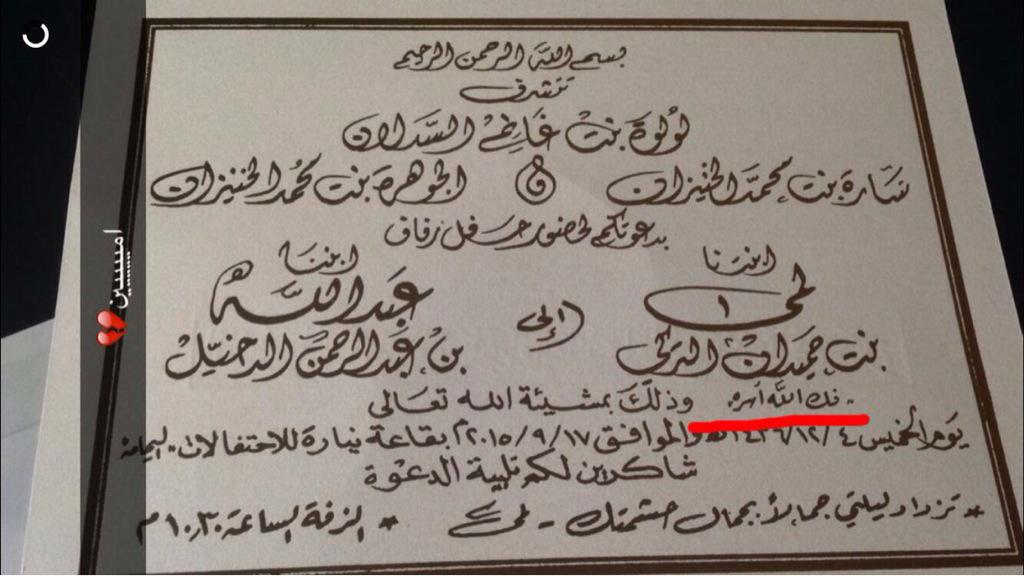 بسم الله الرحمن الرحيم
تتشرف
لولوة بنت غانم السدلان
سارة بنت محمد الخنيزان & الجوهرة بنت محمد الخنيزان
بدعوتكم لحضور حفل زفاف
ابنتنا
لمى
بنت حميدان التركي
- فك الله أسره -
إلى
ابننا
عبدالله
بن عبدالرحمن الدخيّل
وذلك بمشيئة الله تعالى
يوم الخميس ١٤٣٦/١٢/٤هـ الموافق ٢٠١٥/٩/١٧م بقاعة نيارة للاحتفالات - اليمامة
شاكرين لكم تلبية الدعوة
* تزداد ليلتي جمالاً بجمال حشمتك - لمى * الزفة الساعة ١٠,٣٠ م
امييييين 💔